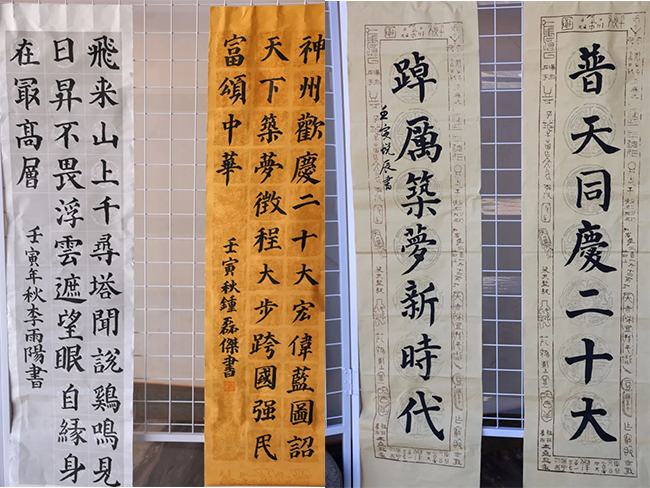 普天同慶二十大
踔厲築夢新時代
壬寅悦辰書
神州歡慶二十大宏偉藍圖詔
天下築夢徵程大步跨國强民
富頌中華
壬寅秋鍾磊傑書
飛来山上千尋塔聞說鷄鳴見
日昇不畏浮雲遮望眼自緣身
在冣高層
壬寅年秋李雨陽書